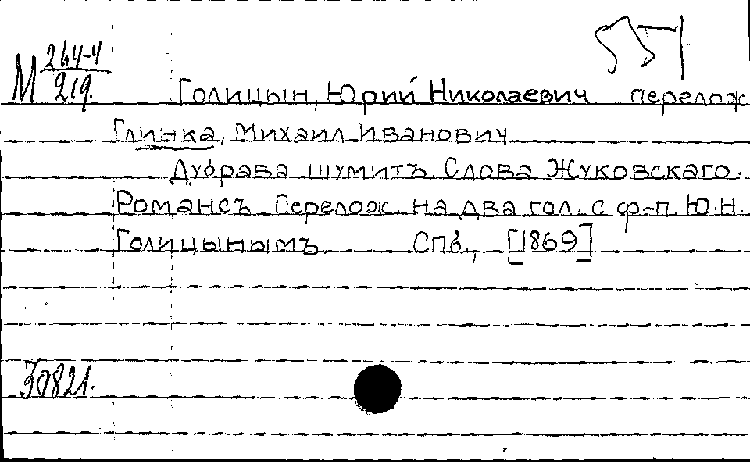 М 264-4
219.
551
Голицын, Юрий Николаевич перелож
Глинка, Михаил Иванович
Дубрава шумитъ Слова Жуковскаго.
Романсъ Перелож на два гол. с ф-п. Ю.Н.
Голицынымъ Спб., [1869]
30821.